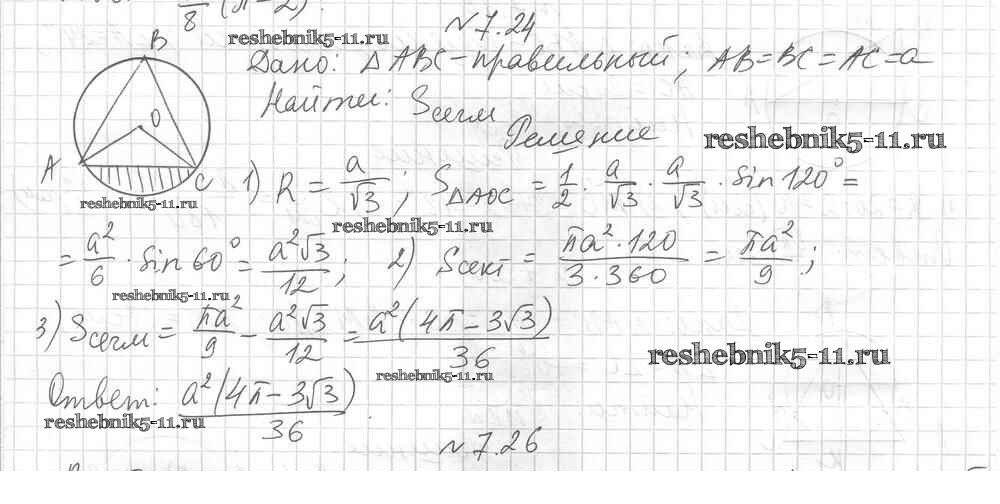 8 (π-2).
№7.24
reshebnik5-11.ru
B
Дано: △ABC - правильный; AB=BC=AC=a
Найти: Sсегм
O
Решение
reshebnik5-11.ru
A
C
1) R = a/√3; S△AOC = 1/2 · a/√3 · a/√3 · sin120° =
reshebnik5-11.ru
reshebnik5-11.ru
= a²/6 · sin60° = a²√3/12; 2) Sсект = πa²·120/3·360 = πa²/9;
reshebnik5-11.ru
3) Sсегм = πa²/9 - a²√3/12 = a²(4π-3√3)/36
reshebnik5-11.ru
reshebnik5-11.ru
Ответ: a²(4π-3√3)/36.
reshebnik5-11.ru
№7.26